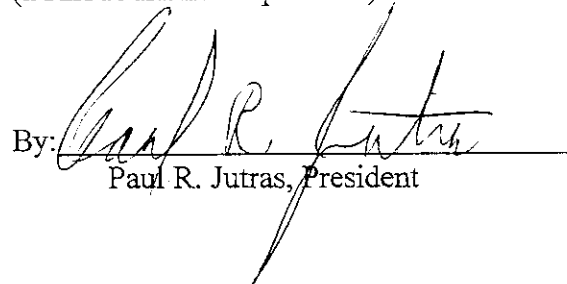 By: Paul R. Jutras
Paul R. Jutras, President